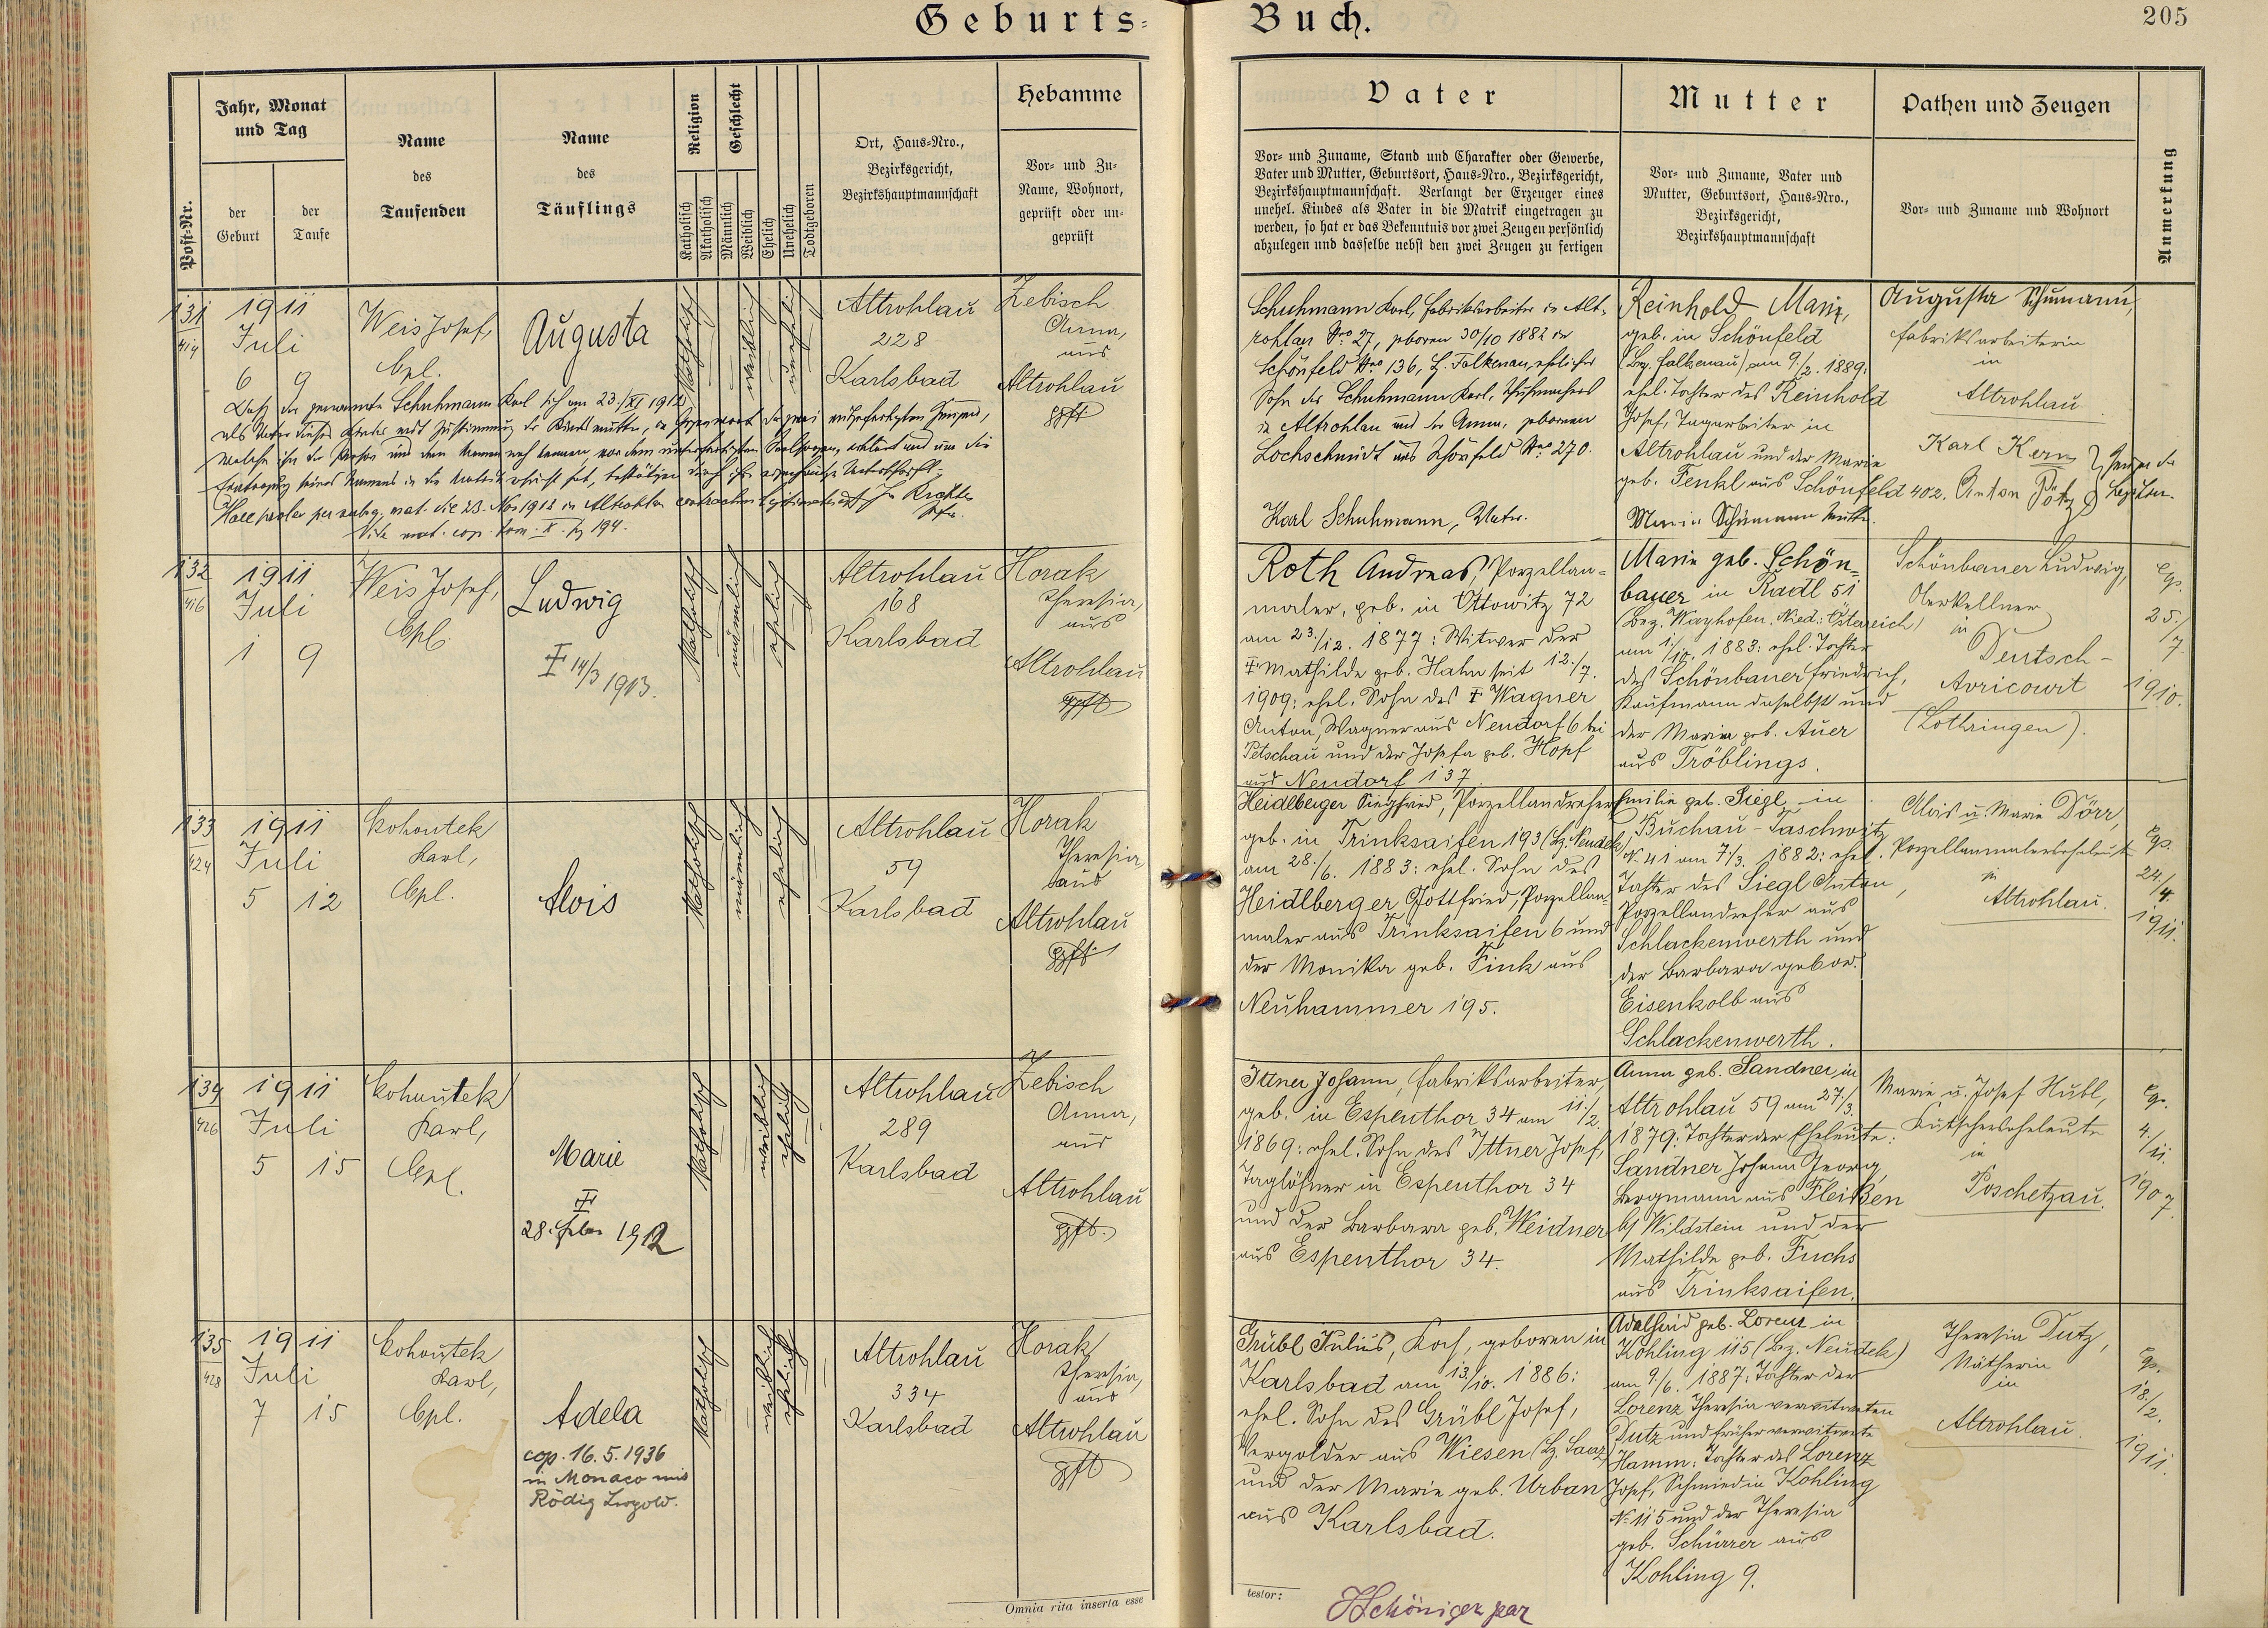 Geburts-Buch.
205
Post-Nr.
Jahr, Monat
und Tag
der
Geburt
der
Taufe
Name
des
Taufenden
Name
des
Täuflings
Religion
Katholisch
Akatholisch
Geschlecht
Männlich
Weiblich
Ehelich
Unehelich
Todtgeboren
Ort, Haus-Nro.,
Bezirksgericht,
Bezirkshauptmannschaft
Hebamme
Vor- und Zu-
Name, Wohnort,
geprüft oder un-
geprüft
Vater
Vor- und Zuname, Stand und Charakter oder Gewerbe,
Vater und Mutter, Geburtsort, Haus-Nro., Bezirksgericht,
Bezirkshauptmannschaft. Verlangt der Erzeuger eines
unehel. Kindes als Vater in die Matrik eingetragen zu
werden, so hat er das Bekenntnis vor zwei Zeugen persönlich
abzulegen und dasselbe nebst den zwei Zeugen zu fertigen
Mutter
Vor- und Zuname, Vater und
Mutter, Geburtsort, Haus-Nro.,
Bezirksgericht,
Bezirkshauptmannschaft
Pathen und Zeugen
Vor- und Zuname und Wohnort
Anmerkung
131
414
1911
Juli
6 9
Weis Josef,
Cpl.
Augusta
katholisch
weiblich
unehelich
Altrohlau
228
Karlsbad
Zebisch
Anna,
aus
Altrohlau
gpft
Daß der genannte Schuhmann Karl sich am 23./XI 1912
als Vater dieses Kindes mit Zustimmung der Kindesmutter, in Gegenwart der zwei
Eintragung seines Namens in die
Vide mat. cop. tom. X. pg 194.
Schuhmann Karl, Fabriksarbeiter in Alt-
rohlau Nro 27, geboren 30/10 1882 in
Schönfeld Nro 136, Bz. Falkenau, ehelicher
Sohn des Schuhmann Karl, Schuhmachers
in Altrohlau und der Anna, geborenen
Lochschmidt aus Schönfeld Nro 270.
Karl Schuhmann, Vater.
Reinhold Marie,
geb. in Schönfeld
(Bez. Falkenau) am 9./2. 1889:
ehel. Tochter des Reinhold
Josef, Tagarbeiter in
Altrohlau und der Marie
geb. Fenkl aus Schönfeld 402.
Marie Schumann Mutter.
Augusta Schumann,
Fabriksarbeiterin
in
Altrohlau
Karl Kern
Anton Pötzl
132
416
1911
Juli
1 9
Weis Josef,
Cpl.
Ludwig
‡ 14/3 1913.
katholisch
männlich
ehelich
Altrohlau
168
Karlsbad
Horak
Theresia,
aus
Altrohlau
gpft
Roth Andreas, Porzellan-
maler, geb. in Ottowitz 72
am 23./12. 1877: Witwer der
‡ Mathilde geb. Hahn seit 12./7.
1909: ehel. Sohn des ‡ Wagner
Anton, Wagner aus Neudorf 6 bei
Petschau und der Josefa geb. Hopf
aus Neudorf 137
Marie geb. Schön-
bauer in Radl 51
(Bez. Wayhofen, Nied: Österreich)
am 1/10. 1883: ehel. Tochter
des Schönbauer Friedrich,
Kaufmann daselbst und
der Maria geb. Auer
aus Tröblings.
Schönbauer Ludwig,
Oberkellner
in
Deutsch-
Avricourt
(Lothringen).
Cop.
25./
7.
1910.
133
424
1911
Juli
5 12
Kohoutek
Karl,
Cpl.
Alois
katholisch
männlich
ehelich
Altrohlau
59
Karlsbad
Horak
Theresia
aus
Altrohlau
gpft
Heidlberger Siegfried, Porzellandreher
geb. in Trinksaifen 193 (Bz. Neudek)
am 28./6. 1883: ehel. Sohn des
Heidlberger Gottfried, Porzellan-
maler aus Trinksaifen 6 und
der Monika geb. Fink aus
Neuhammer 195.
Emilie geb. Siegl in
Buchau-Taschwitz
N. 41 am 7./3. 1882: ehel.
Tochter des Siegl Anton,
Porzellandreher aus
Schlackenwerth und
der Barbara gebor.
Eisenkolb aus
Schlackenwerth.
Alois u. Marie Dörr,
Porzellanmalerseheleute
in
Altrohlau.
Cop.
24./
4.
1911.
134
426
1911
Juli
5 15
Kohoutek
Karl,
Cpl.
Marie
‡
28. Feber 1912
katholisch
weiblich
ehelich
Altrohlau
289
Karlsbad
Zebisch
Anna,
aus
Altrohlau
gpft.
Ittner Johann, Fabriksarbeiter,
geb. in Espenthor 34 am 11./2.
1869: ehel. Sohn des Ittner Josef,
Taglöhner in Espenthor 34
und der Barbara geb. Weidner
aus Espenthor 34.
Anna geb. Sandner, in
Altrohlau 59 am 27./3.
1879: Tochter der Eheleute:
Sandner Johann Georg,
Bergmann aus Fleißen
b/ Wildstein und der
Mathilde geb. Fuchs
aus Trinksaifen.
Marie u. Josef Hubl,
Kutscherseheleute
in
Poschetzau.
Cop.
4./
11.
1907.
135
428
1911
Juli
7 15
Kohoutek
Karl,
Cpl.
Adela
cop. 16.5.1936
in Monaco mit
Rödig Leopold.
katholisch
weiblich
ehelich
Altrohlau
334
Karlsbad
Horak
Theresia,
aus
Altrohlau
gpft
Grübl Julius, Koch, geboren in
Karlsbad am 13./10. 1886:
ehel. Sohn des Grübl Josef,
Vergolder aus Wiesen (Bz. Saaz)
und der Marie geb. Urban
aus Karlsbad.
Adelheid geb. Lorenz in
Kohling 115 (Bez. Neudek)
am 9./6. 1887: Tochter der
Lorenz Theresia verwitweten
Dutz und früher verwitwete
Hamm: Tochter des Lorenz
Josef, Schmied in Kohling
No 115 und der Theresia
geb. Schürer aus
Kohling 9.
Theresia Dutz,
Nätherin
in
Altrohlau.
Cop.
18./
2.
1911.
Omnia rita inserta esse
testor: